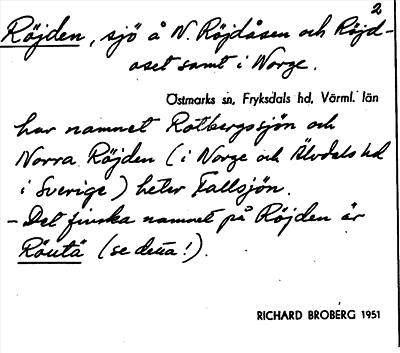 2
Röjden, sjö å N. Röjdåsen och Röjd-
åset samt i Norge.
Östmarks sn, Fryksdals hd, Värml. län
har namnet Rotbergssjön och
Norra Röjden (i Norge och Älvdals hd
i Sverige) heter Fallsjön.
- Det finska namnet på Röjden är
Röutä (se detta!).
RICHARD BROBERG 1951